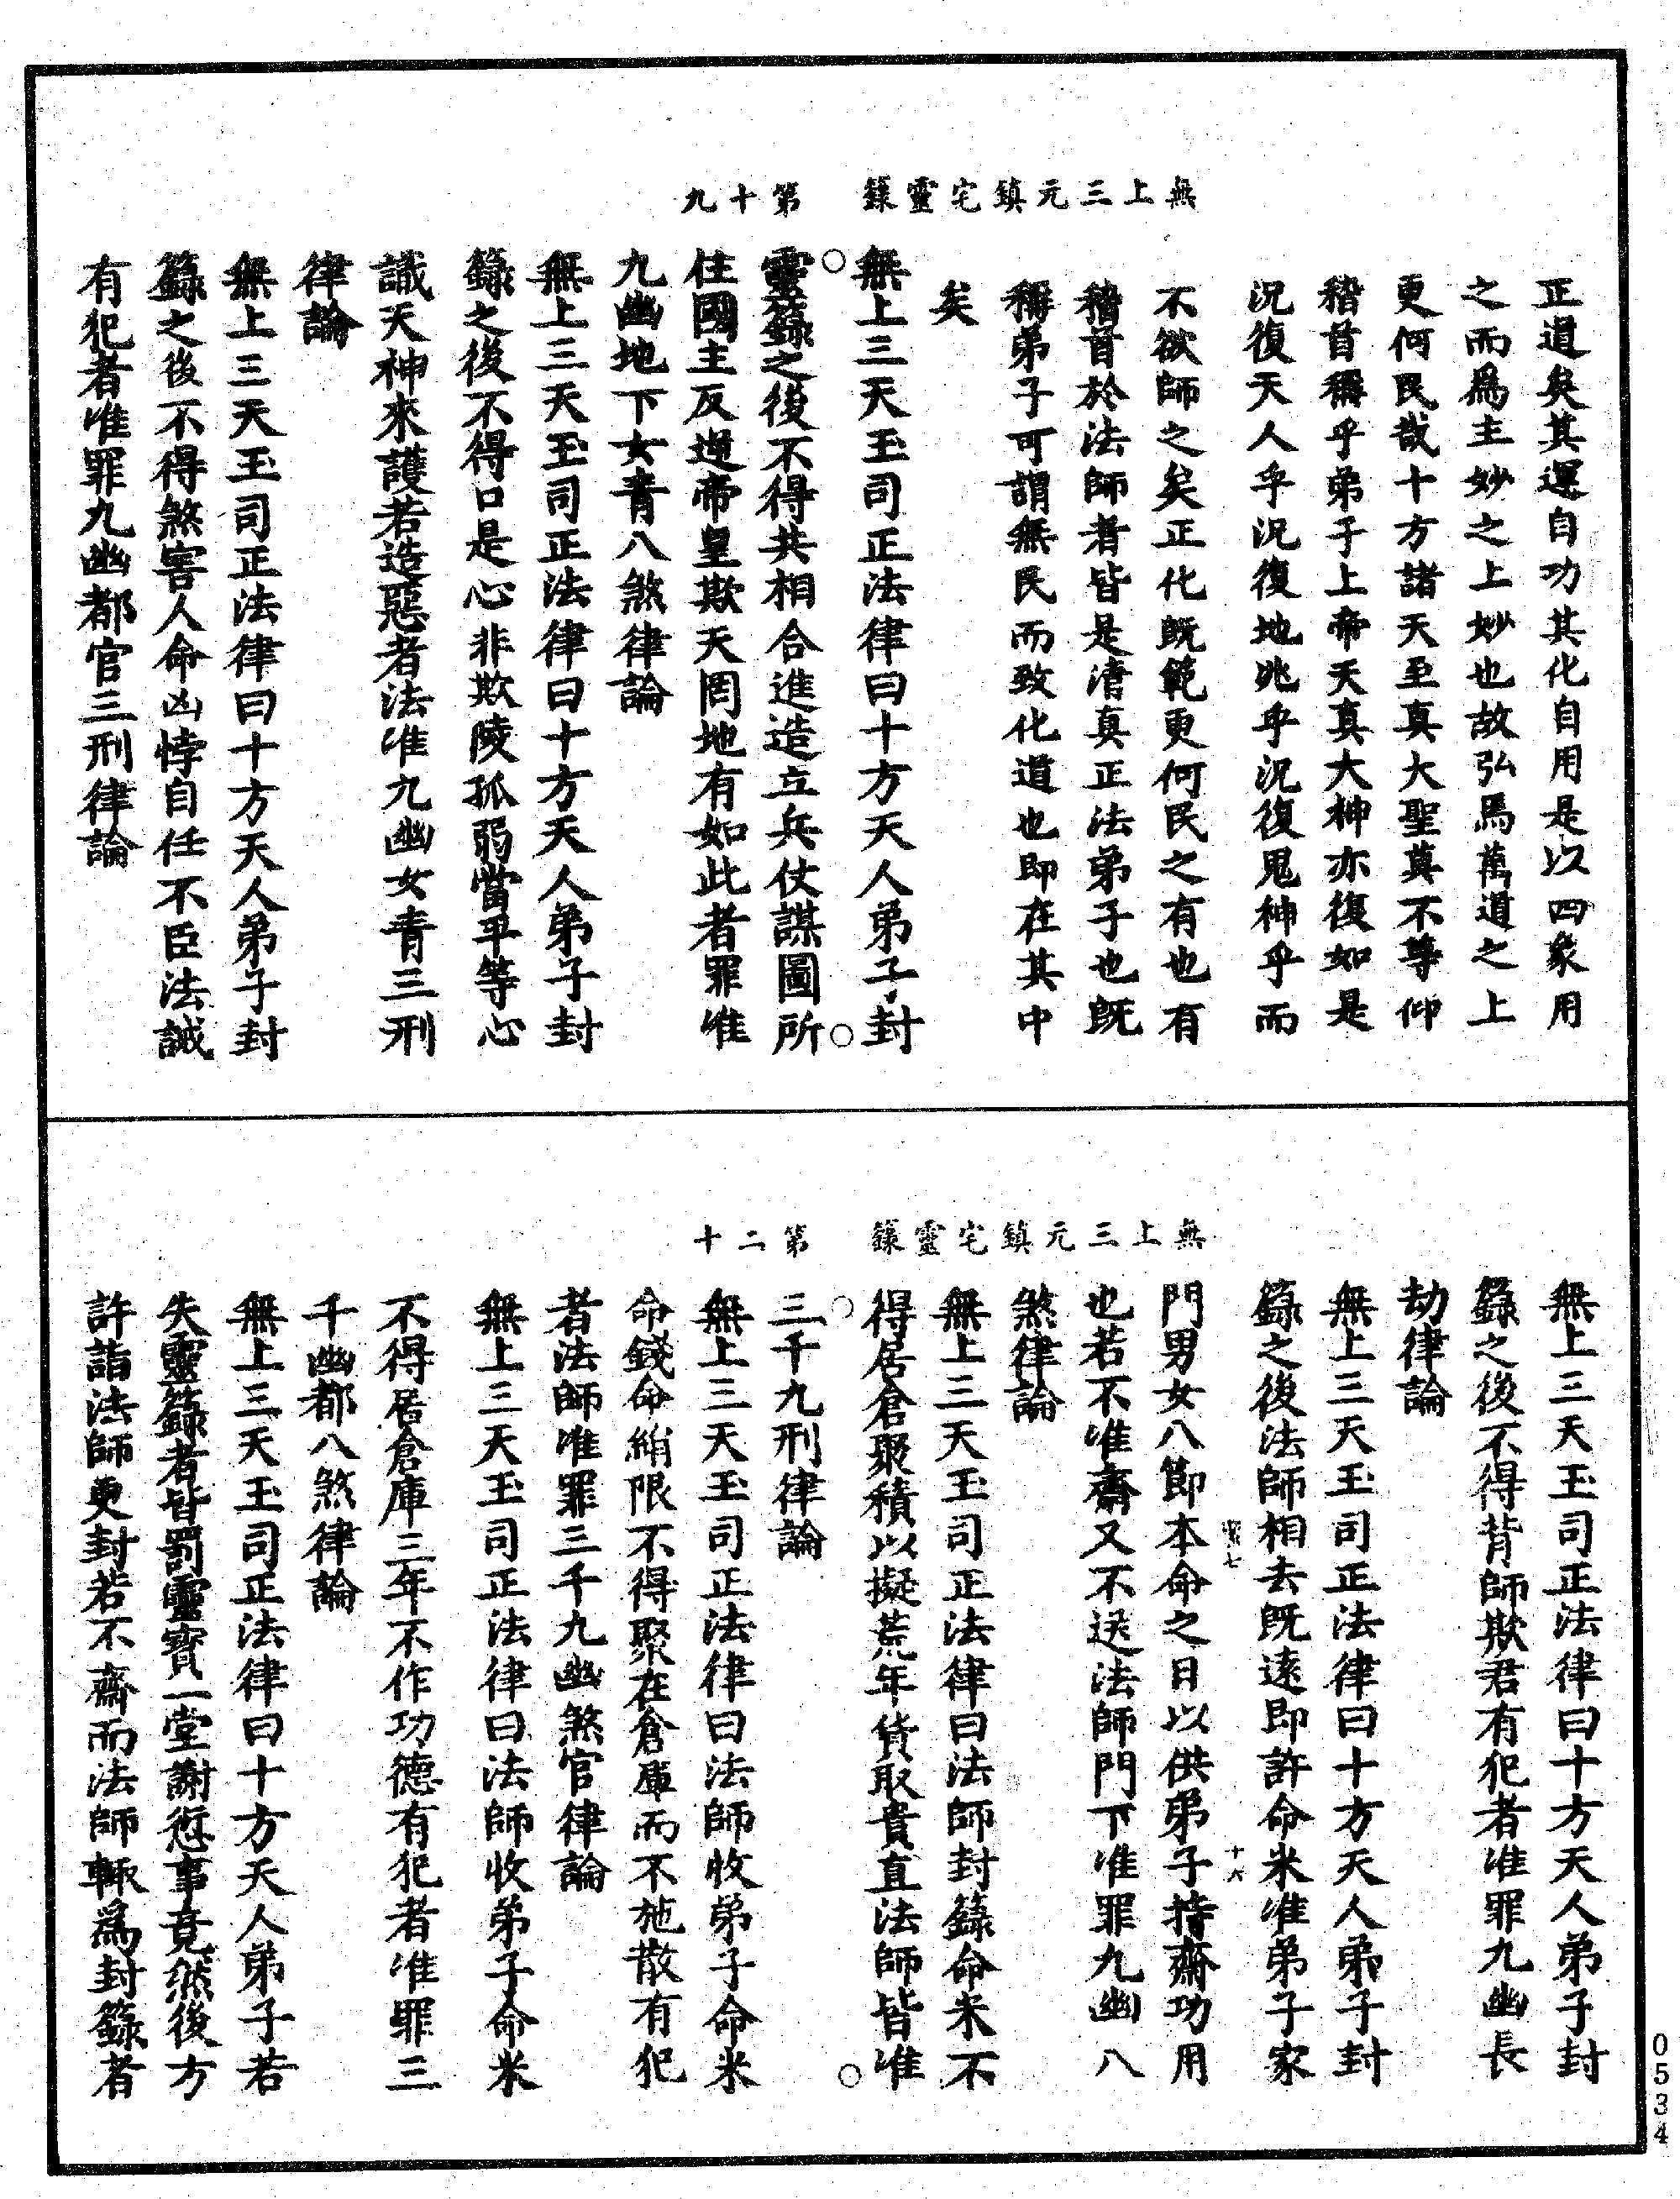 無上三元鎮宅靈籙　第十九
正道矣其運自功其化自用是以四象用
之而爲主妙之上妙也故弘爲萬道之上
更何民哉十方諸天至真大聖莫不尊仰
稽首稱乎弟子上帝天真大神亦復如是
況復天人乎況復地兆乎況復鬼神乎而
不欲師之矣正化既範更何民之有也有
稽首於法師者皆是清真正法弟子也既
稱弟子可謂無民而致化道也即在其中
矣
無上三天玉司正法律曰十方天人弟子封
靈籙之後不得共相合進造立兵仗謀圖所
住國主反逆帝皇欺天罔地有如此者罪准
九幽地下女青八煞律論
無上三天玉司正法律曰十方天人弟子封
籙之後不得口是心非欺陵孤弱當平等心
識天神來護若造惡者法准九幽女青三刑
律論
無上三天玉司正法律曰十方天人弟子封
籙之後不得煞害人命凶悖自任不臣法誡
有犯者准罪九幽都官三刑律論
無上三元鎮宅靈籙　第二十
無上三天玉司正法律曰十方天人弟子封
籙之後不得背師欺君有犯者准罪九幽長
劫律論
無上三天玉司正法律曰十方天人弟子封
籙之後法師相去既遠即許命米准弟子家
十六
門男女八節本命之日以供弟子持齋功用
也若不准齋又不送法師門下准罪九幽八
煞律論
無上三天玉司正法律曰法師封籙命米不
得居倉聚積以擬荒年貨取貴直法師皆准
三千九刑律論
無上三天玉司正法律曰法師收弟子命米
命錢命絹限不得聚在倉庫而不施散有犯
者法師准罪三千九幽煞官律論
無上三天玉司正法律曰法師收弟子命米
不得居倉庫三年不作功德有犯者准罪三
千幽都八煞律論
無上三天玉司正法律曰十方天人弟子若
失靈籙者皆罰靈寶一堂謝愆事竟然後方
許詣法師更封若不齋而法師輒爲封籙者
0534